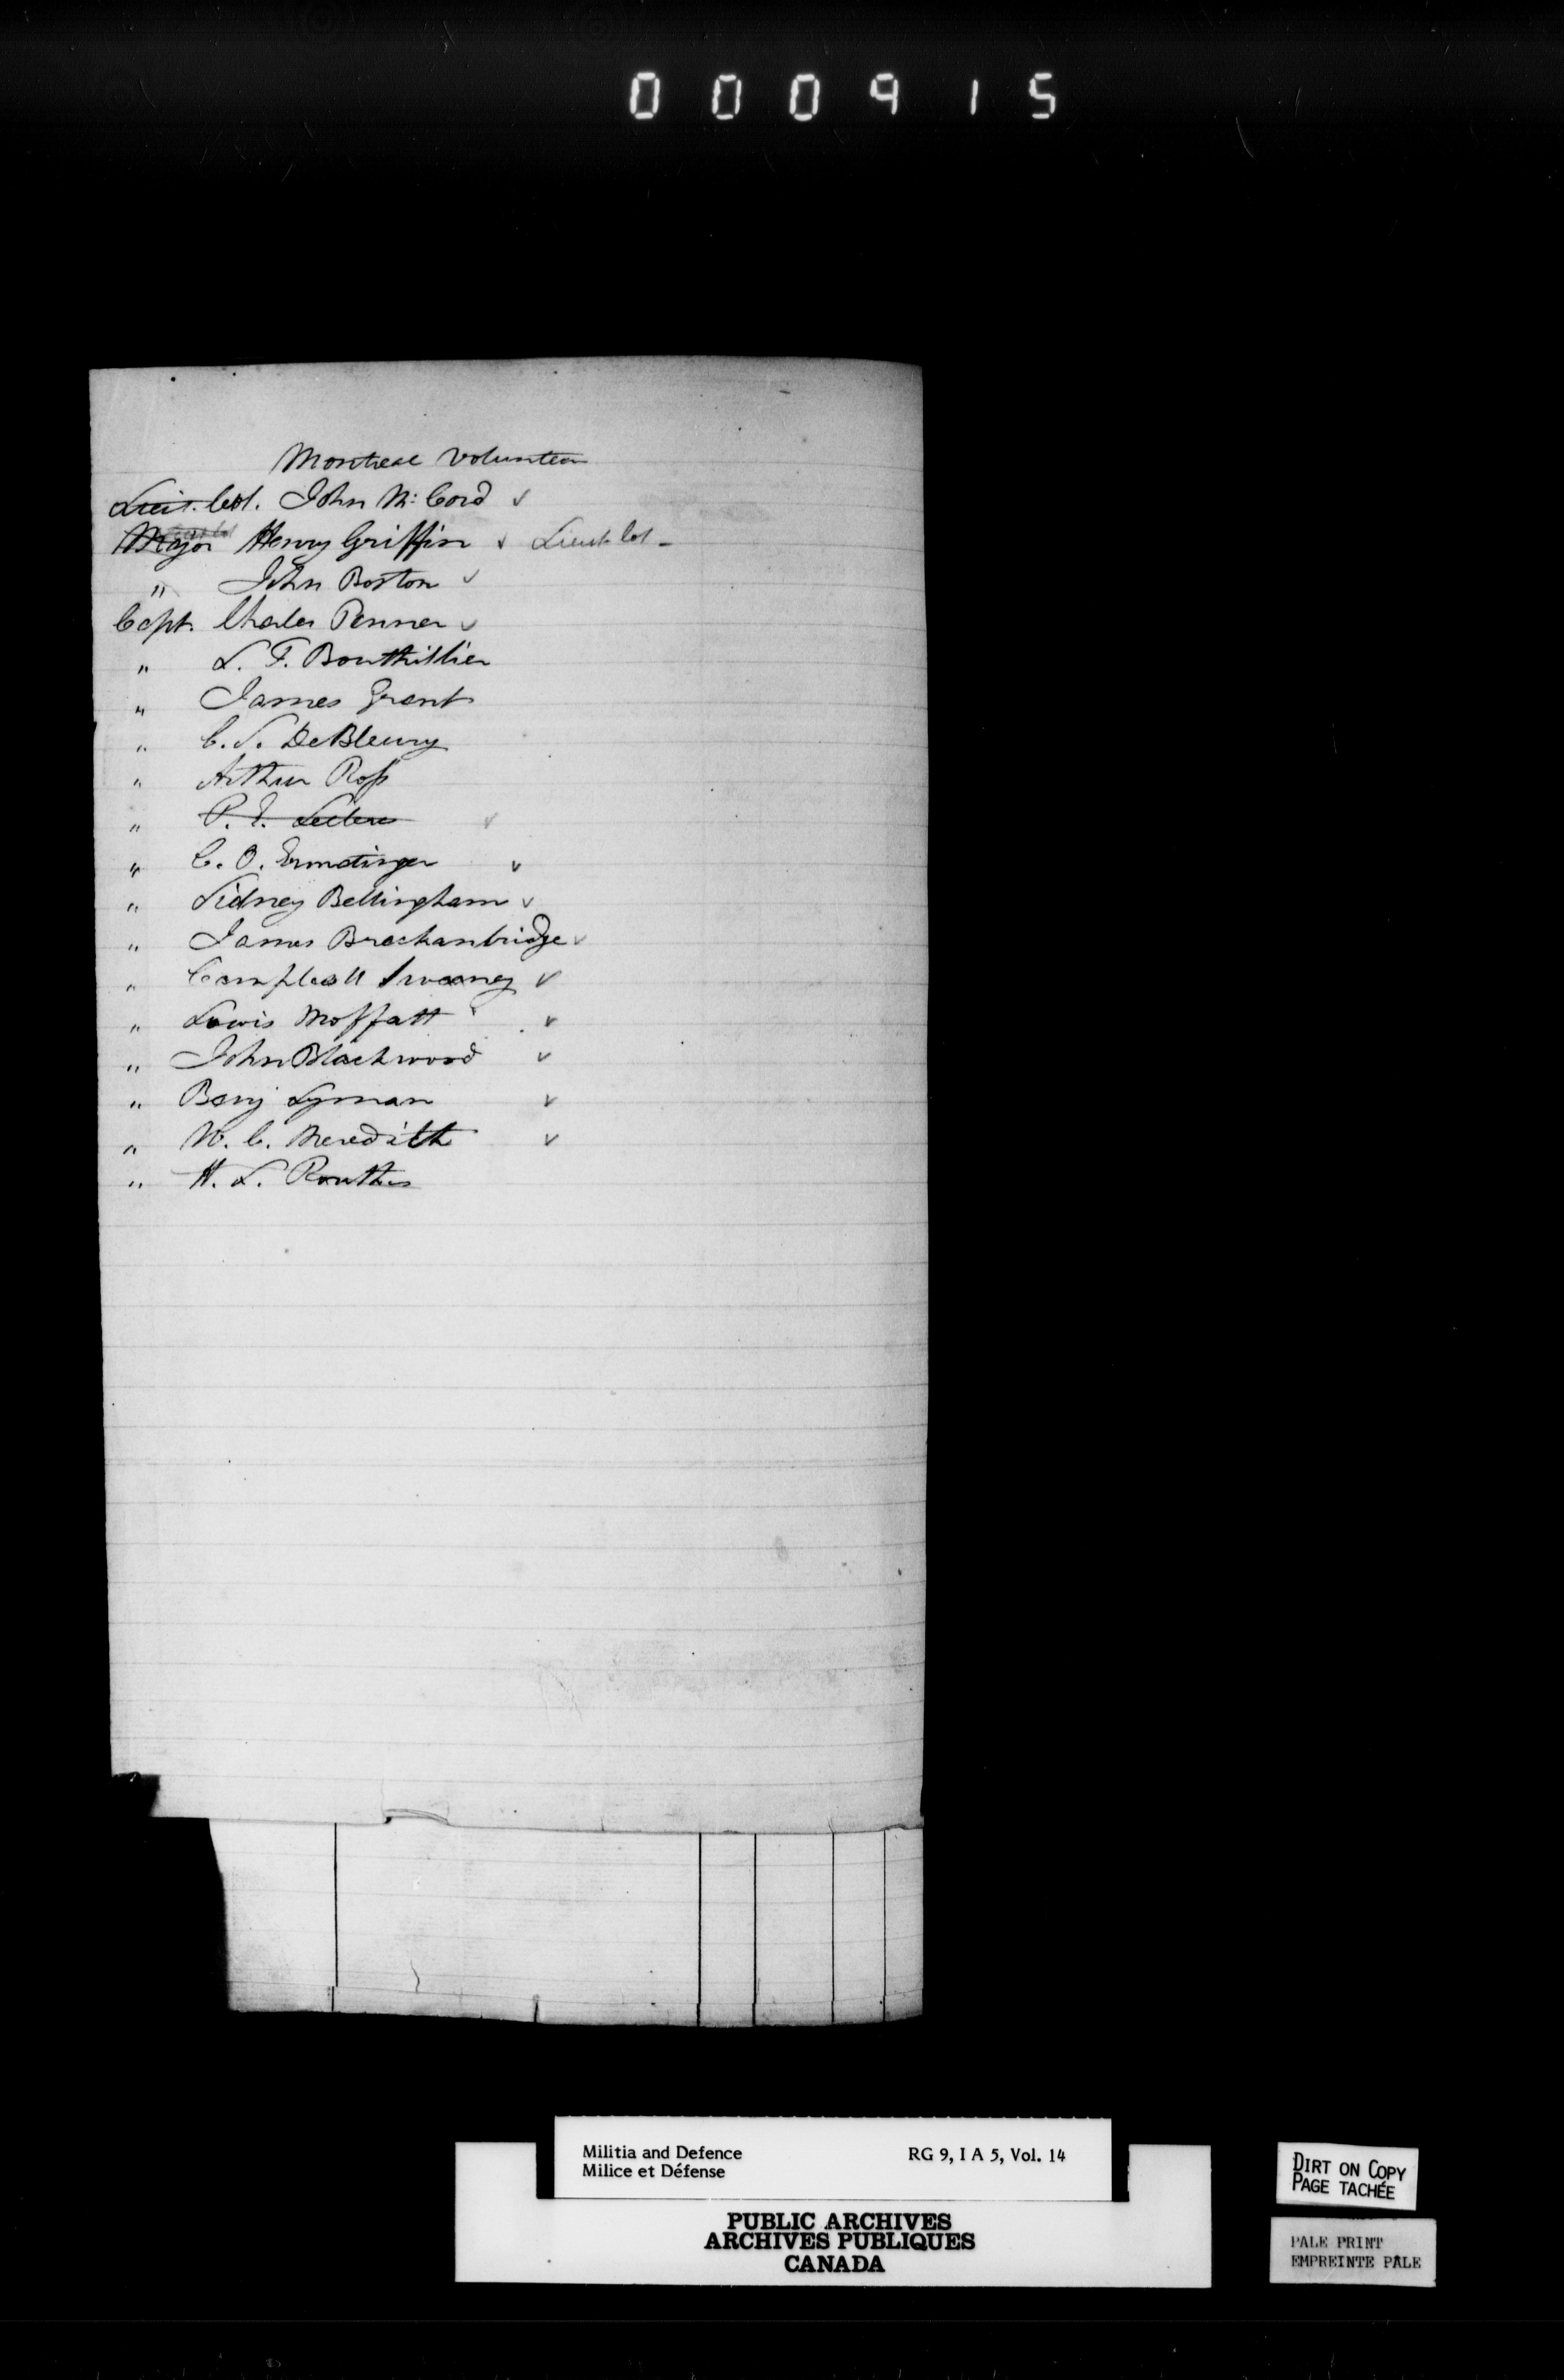 000915
Montreal Volunteers
Lieut. Col. John McCord ✓
Major Henry Griffin ✓ Lieut Col -
" John Boston ✓
Capt. Charles Penner ✓
" L. F. Bouthillier
" James Grant
" C. S. DeBleury
" Arthur Ross
" P. E. Leclere ✓
" C. O. Ermatinger ✓
" Sidney Bellingham ✓
" James Brackanbridge ✓
" Campbell Sweeney ✓
" Lewis Moffatt ✓
" John Blackwood ✓
" Benj Lyman ✓
" W. C. Meredith ✓
" H. L. Routhes
Militia and Defence RG 9, I A 5, Vol. 14
Milice et Défense
PUBLIC ARCHIVES
ARCHIVES PUBLIQUES
CANADA
DIRT ON COPY
PAGE TACHÉE
PALE PRINT
EMPREINTE PÂLE